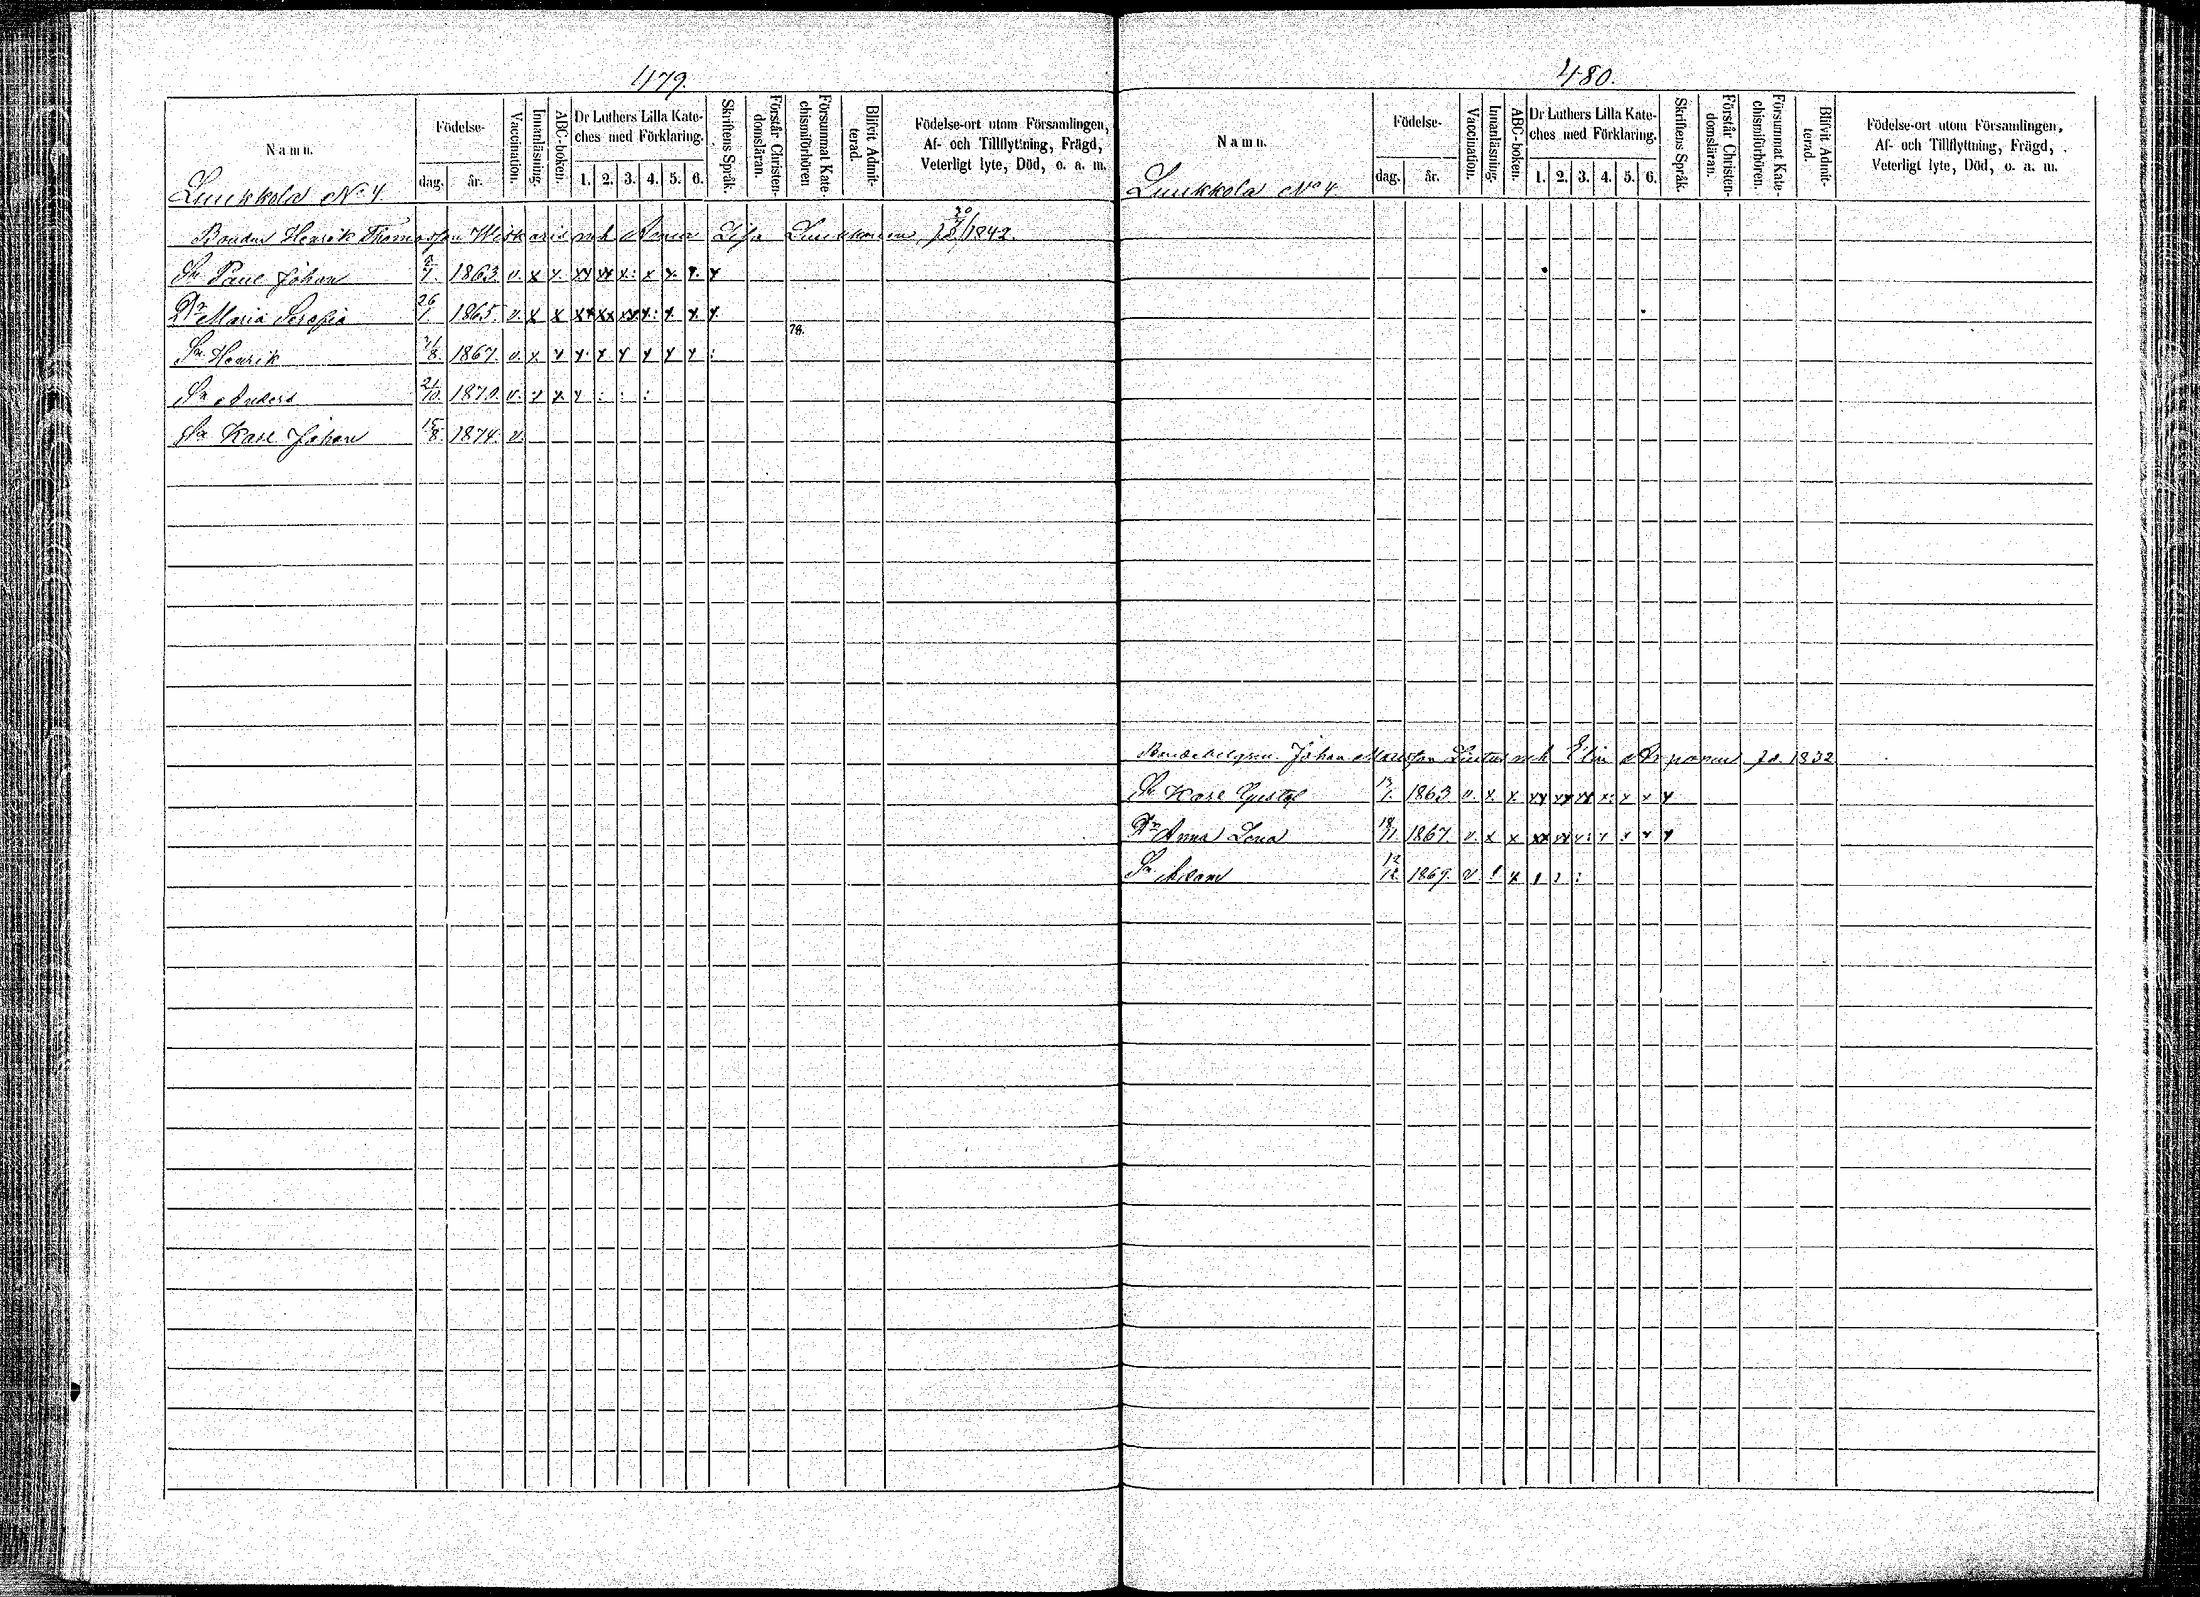 479.
Namn.
Födelse-
dag.
år.
Vaccination.
Innanläsning.
ABC-boken.
Dr Luthers Lilla Kate-
ches med Förklaring.
1. 2. 3. 4. 5. 6.
Skriftens Språk.
Förstår Christen-
domsläran.
Försummat Kate-
chismiförhören
Blifvit Admit-
terad.
Födelse-ort utom Församlingen,
Af- och Tillflyttning, Frägd,
Veterligt lyte, Död, o. a. m.
Luukkola No 4
Bonden Henrik Thomasson Wiskari mh Anna Lisa Luukkonen 1842.
Sn Paul Johan 1. 1863. v. x x xx xx x: x x. x. x
Dr Maria Serafia 26/1. 1865. v. x x xx xx xx x: x x x
78.
Sn Henrik 21/8. 1867. v. x x x x x x x x :
Sn Anders 21/10. 1870. v. x x x : : :
Sn Karl Johan 15/8. 1874. v.
480.
Namn.
Födelse-
dag.
år.
Vaccination.
Innanläsning.
ABC-boken.
Dr Luthers Lilla Kate-
ches med Förklaring.
1. 2. 3. 4. 5. 6.
Skriftens Språk.
Förstår Christen-
domsläran.
Försummat Kate-
chismiförhören.
Blifvit Admit-
terad.
Födelse-ort utom Församlingen,
Af- och Tillflyttning, Frägd,
Veterligt lyte, Död, o. a. m.
Luukkola No 4.
Johan Mattsson mh Elin fd. 1832
Sn Karl Gustaf 1. 1863 v. x x xx xx xx x: x x x
Dr Anna Lena 18/11 1867. v. x x xx xx x: x x x x
Sn Adam 12/12 1869. v x